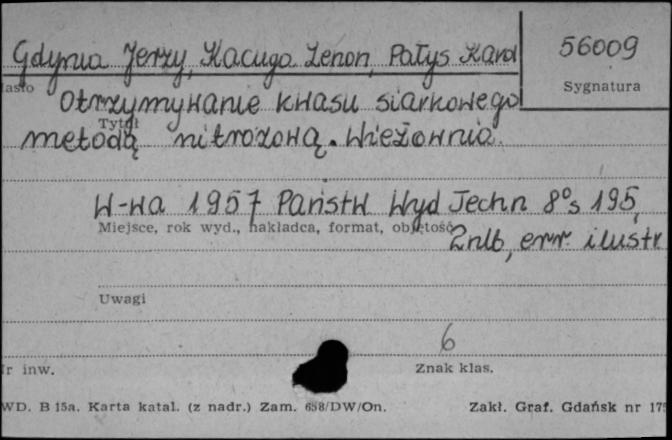 Gdynia Jerzy, Kaczuga Zenon, Patys Karol
56009
Sygnatura
Hasło
Otrzymywanie kwasu siarkowego
Tytuł
metodą nitrozową. Wieżownia.
W-wa 1957 Państw Wyd Techn 8° s 195,
Miejsce, rok wyd., nakładca, format, objętość
2nlb, err. ilustr
Uwagi
6
Nr inw.
Znak klas.
WD. B 15a. Karta katal. (z nadr.) Zam. 658/DW/On.
Zakł. Graf. Gdańsk nr 175